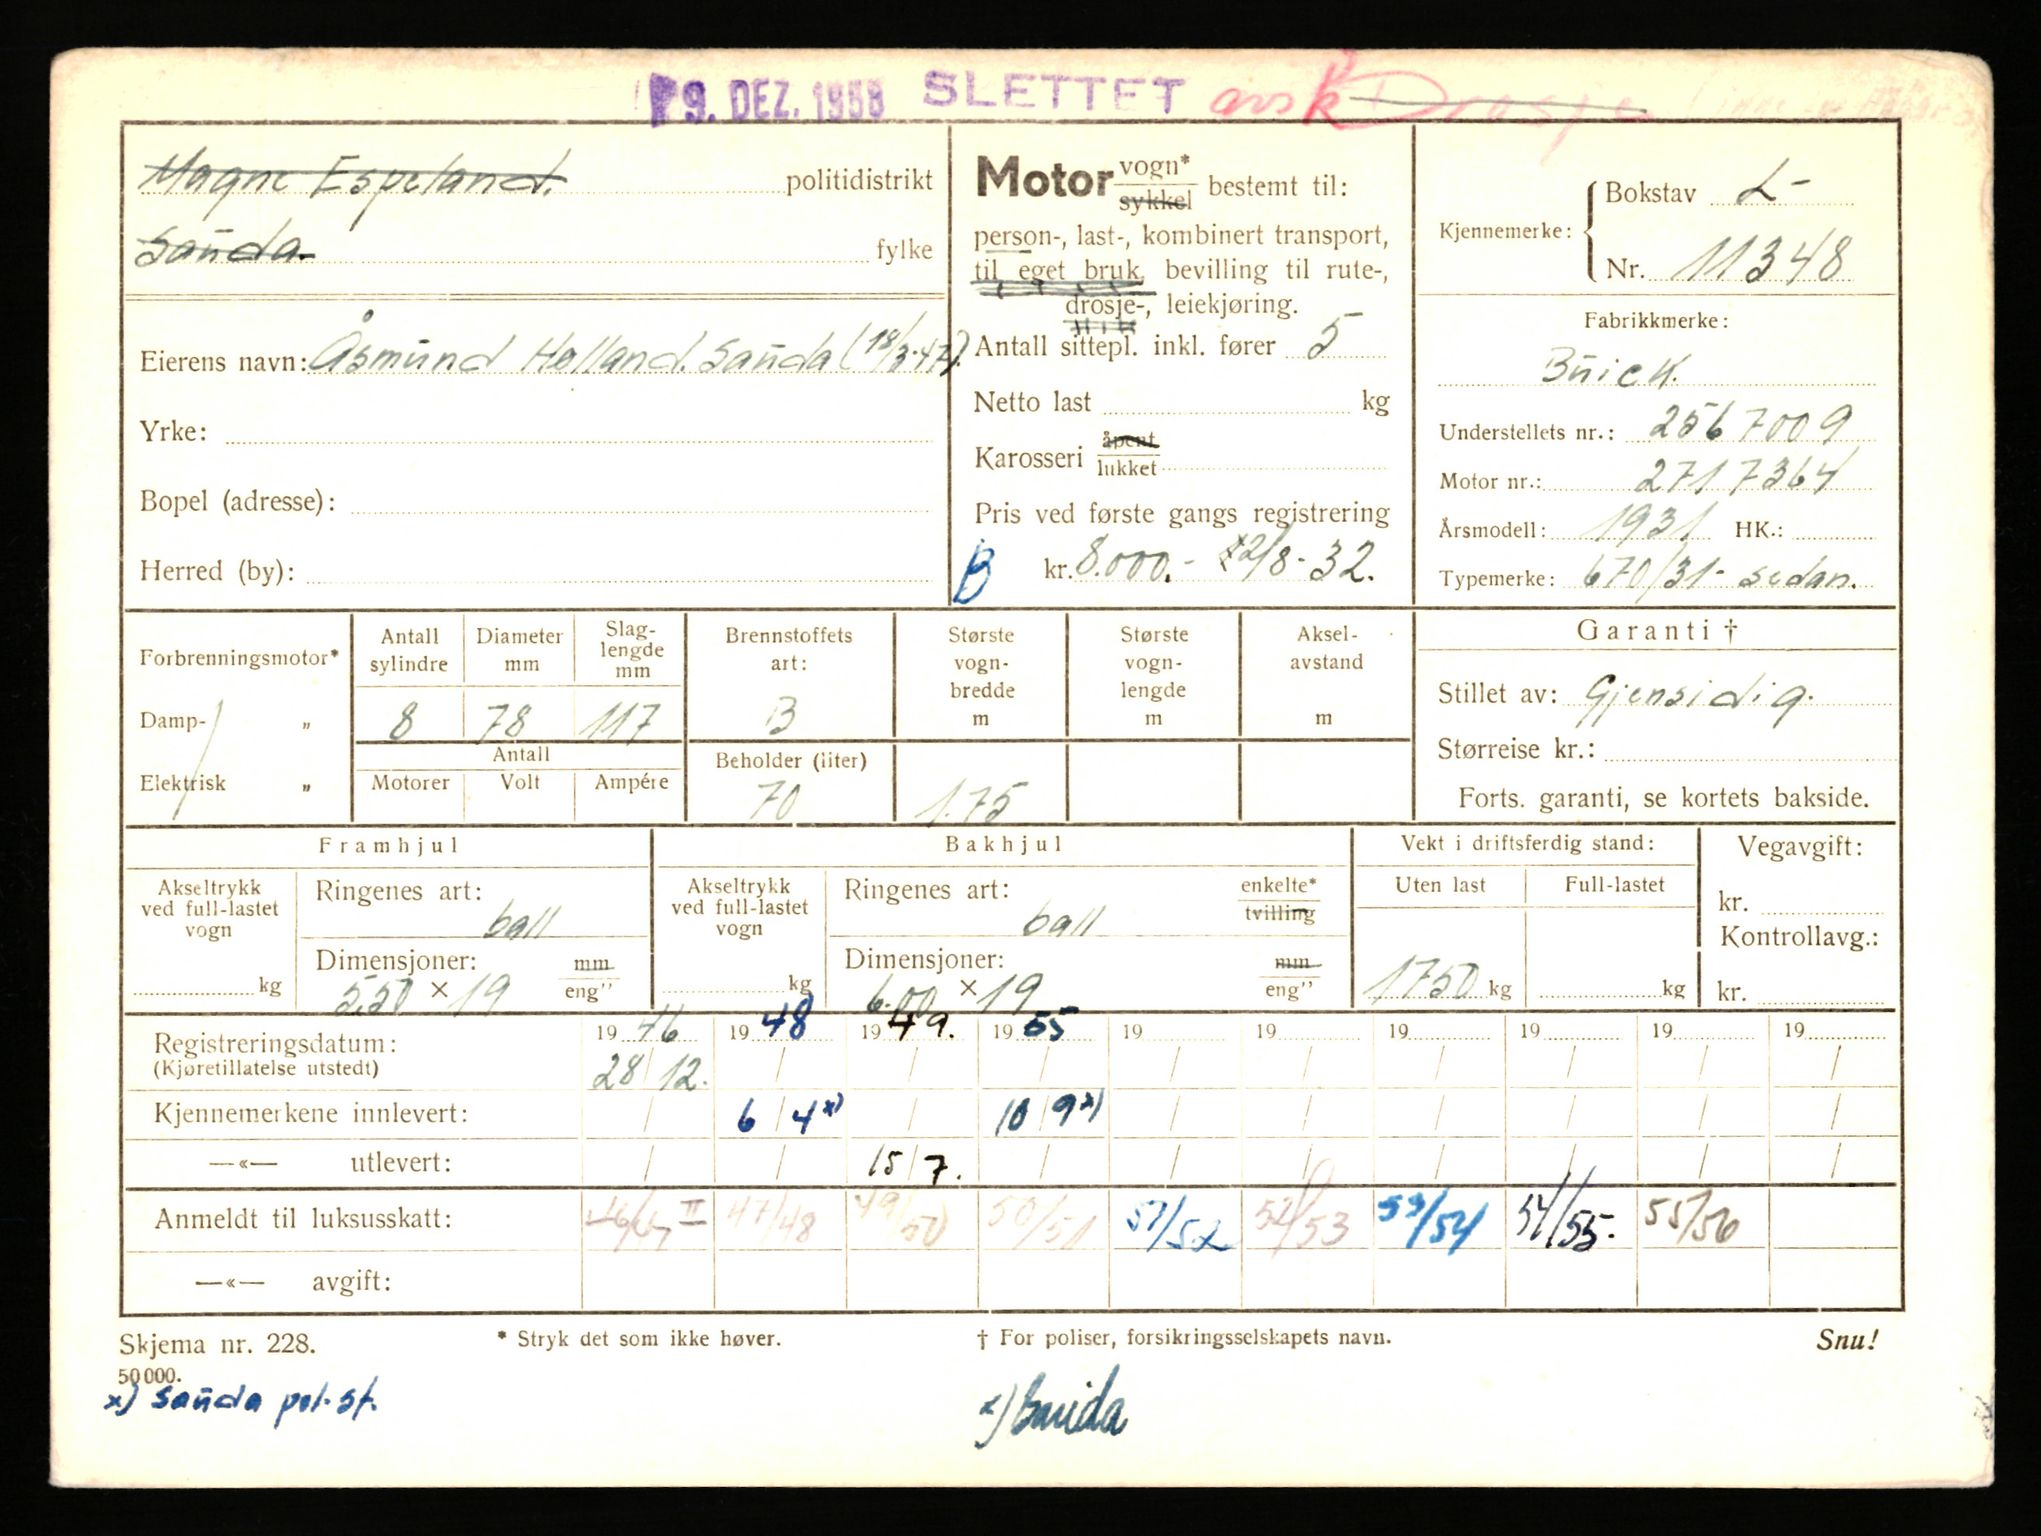 9. DEZ. 1958 SLETTET avsk Drosje
Magne Espeland. politidistrikt
Sauda. fylke
Eierens navn: Åsmund Helland. Sauda (18/3-47).
Yrke:
Bopel (adresse):
Herred (by):
Motor vogn* sykkel bestemt til:
person-, last-, kombinert transport,
til eget bruk, bevilling til rute-,
drosje-, leiekjøring.
Antall sittepl. inkl. fører 5
Netto last kg
Karosseri åpent lukket
Pris ved første gangs registrering
B kr. 8.000.- 22/8-32.
Kjennemerke: Bokstav L-
Nr. 11348
Fabrikkmerke:
Buick.
Understellets nr.: 2567009
Motor nr.: 2717364
Årsmodell: 1931 HK.:
Typemerke: 670/31- sedan.
Forbrenningsmotor*
Damp- „
Elektrisk „
Antall sylindre Diameter mm Slag-lengde mm
8 78 117
Antall
Motorer Volt Ampére
Brennstoffets art:
B
Beholder (liter)
70
Største vogn-bredde m
1.75
Største vogn-lengde m
Aksel-avstand m
Garanti †
Stillet av: Gjensidig.
Størreise kr.:
Forts. garanti, se kortets bakside.
Framhjul
Akseltrykk ved full-lastet vogn
kg
Ringenes art:
ball
Dimensjoner: mm
5.50 × 19 eng"
Bakhjul
Akseltrykk ved full-lastet vogn
kg
Ringenes art: enkelte* tvilling
ball
Dimensjoner: mm
6.00 × 19 eng"
Vekt i driftsferdig stand:
Uten last Full-lastet
1750 kg kg
Vegavgift:
kr.
Kontrollavg.:
kr.
1946 1948 1949. 1955 19 19 19 19 19 19
Registreringsdatum:
(Kjøretillatelse utstedt) 28/12. / / / / / / / / /
Kjennemerkene innlevert: / 6/4 x) / 10/9 x) / / / / / /
—«— utlevert: / / 15/7. / / / / / / /
Anmeldt til luksusskatt: 46/47 II 47/48 49/50 50/51 51/52 52/53 53/54 54/55. 55/56
—«— avgift:
Skjema nr. 228. * Stryk det som ikke høver. † For poliser, forsikringsselskapets navn. Snu!
50000.
x) Sauda pol.st.
x) Sauda